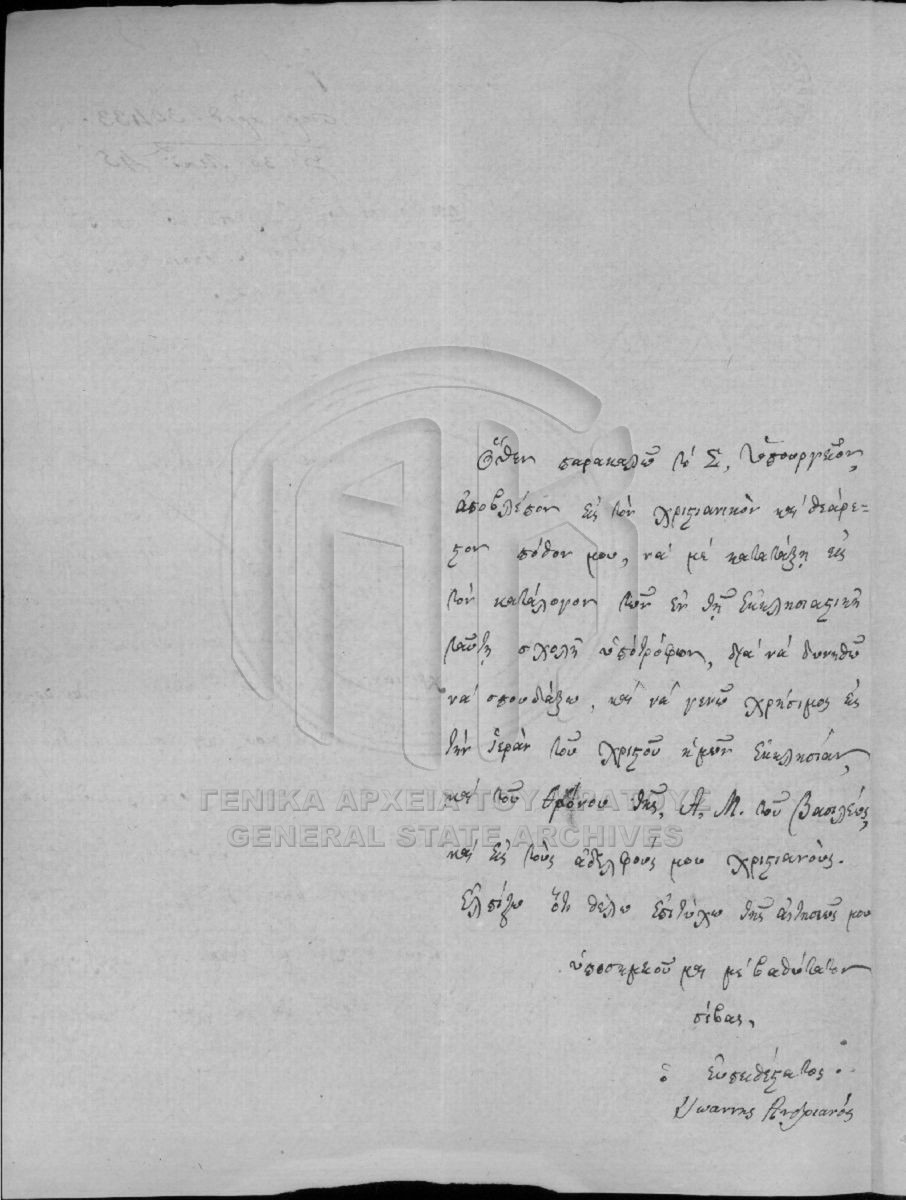 Ὅθεν παρακαλῶ τὸ Σ. Ὑπουργεῖον,
ἀποβλέπον εἰς τὸν χριστιανικὸν καὶ θεάρε=
στον πόθον μου, νά μέ κατατάξῃ εἰς
τόν κατάλογον τῶν ἐν τῇ Ἐκκλησιαστικῇ
ταύτῃ σχολῇ ὑποτρόφων, διά νά δυνηθῶ
νά σπουδάξω, καί νά γενῶ χρήσιμος εἰς
τήν ἱεράν τοῦ Χριστοῦ ἡμῶν Ἐκκλησίαν,
καί τοῦ θρόνου τῆς Α. Μ. τοῦ Βασιλέως,
καί εἰς τούς ἀδελφούς μου χριστιανούς.
Ἐλπίζω ὅτι θέλω ἐπιτύχω τῆς αἰτήσεώς μου
ὑποσημειοῦμαι μέ βαθύτατον
σέβας,
ὁ εὐπειθέστατος
Ἰωάννης Ἀνδριανός
ΓΕΝΙΚΑ ΑΡΧΕΙΑ ΤΟΥ ΚΡΑΤΟΥΣ
GENERAL STATE ARCHIVES